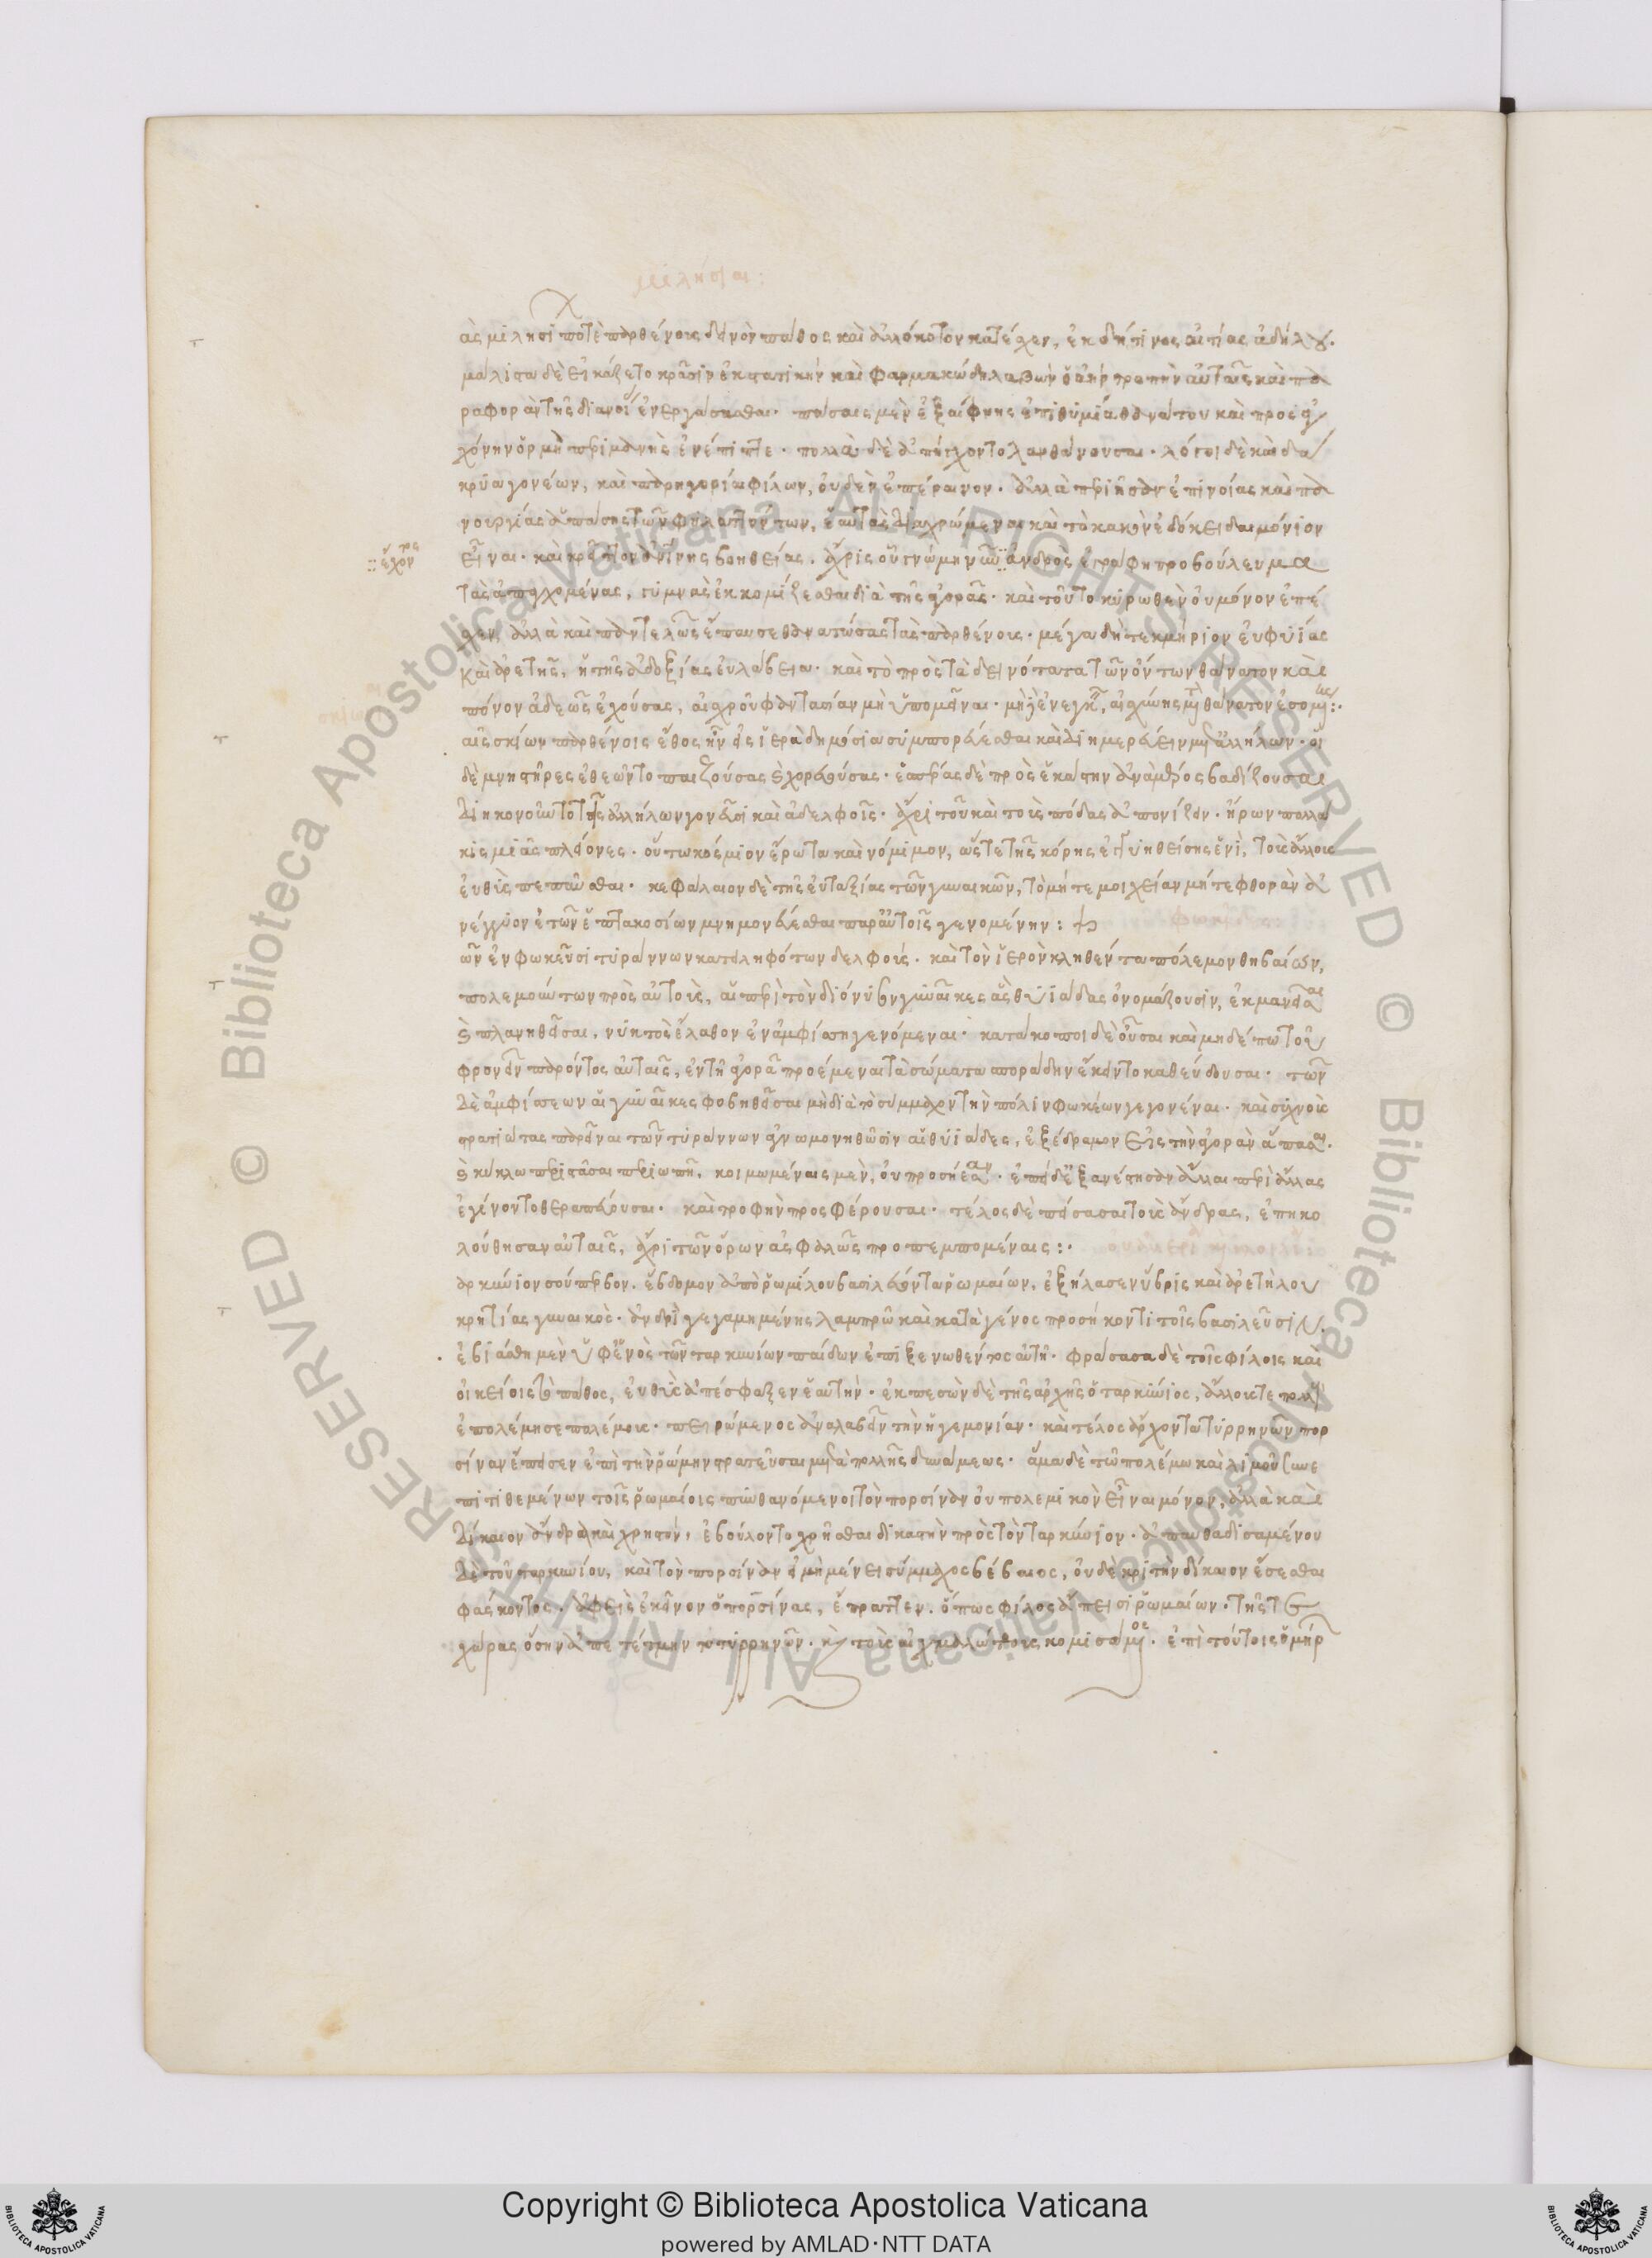 μιλήσιαι:
ὰς μιλησί ποτὲ παρθένους δεινὸν πάθος καὶ ἀλλόκοτον κατέσχεν, ἐκ δή τινος αἰτίας ἀδήλου.
μάλιστα δὲ εἰκάζετο κρᾶσιν ἐκστατικὴν καὶ φαρμακώδη λαβὼν ὁ ἀὴρ τροπὴν αὐταῖς καὶ πα
ραφορὰν τῆς διανοίας ἐνεργάσασθαι. πάσαις μὲν ἐξαίφνης ἐπιθυμία θανάτου καὶ πρὸς ἀγ
χόνην ὁρμὴ περιμανὴς ἐνέπιπτε. πολλαὶ δὲ ἀπήγχοντο λανθάνουσαι. λόγοι δὲ καὶ δά
κρυα γονέων, καὶ παρηγορίαι φίλων, οὐδὲν ἐπέραινον. ἀλλὰ περιῆσαν ἐπινοίας καὶ πα
νουργίας ἁπάσης τῶν φυλαττόντων, ἑαυτὰς διαχρώμεναι καὶ τὸ κακὸν ἐδόκει δαιμόνιον
εἶναι. καὶ κρεῖττον ἀνθρωπίνης βοηθείας. ἄχρις οὗ γνώμη νῶ ἀνδρὸς ἐγράφη προβούλευμα
:: ἔχοντος
τὰς ἀπαγχομένας, γυμνὰς ἐκκομίζεσθαι διὰ τῆς ἀγορᾶς. καὶ τοῦτο κυρωθὲν οὐ μόνον ἐπέ
σχεν, ἀλλὰ καὶ παντελῶς ἔπαυσε θανατώσας τὰς παρθένους. μέγα δὴ τεκμήριον εὐφυίας
καὶ ἀρετῆς, ἡ τῆς ἀδοξίας εὐλάβεια. καὶ τὸ πρὸς τὰ δεινότατα τῶν ὄντων θάνατον καὶ
πόνον ἀδεῶς ἐχούσας, αἰσχροῦ φαντασίαν μὴ ὑπομεῖναι. μὴ δ' ἐνεγκεῖν, αἰσχύνης μετὰ θάνατον ἐσομένης:.
αῖς κίων παρθένοις ἔθος ἦν εἰς ἱερὰ δημόσια συμπορεύεσθαι καὶ διημερεύειν μετ' ἀλλήλων. οἱ
δὲ μνηστῆρες ἐθεῶντο παιζούσας καὶ χορευούσας. ἑσπέρας δὲ πρὸς ἑκάστην ἀνὰ μέρος βαδίζουσαι
διηκονοῦντο τοῖς ἀλλήλων γονεῦσι καὶ ἀδελφοῖς. ἄχρι τοῦ καὶ τοὺς πόδας ἀπονίζειν. ἤρων πολλά
κις μιᾶς πλείονες. οὕτω κόσμιον ἔρωτα καὶ νόμιμον, ὥστε τῆς κόρης ἐγγυηθείσης ἑνὶ, τοὺς ἄλλους
εὐθὺς πεπαῦσθαι. κεφάλαιον δὲ τῆς εὐταξίας τῶν γυναικῶν, τὸ μήτε μοιχείαν μήτε φθορὰν ἀ
νέγγυον ἐτῶν ἑπτακοσίων μνημονεύεσθαι παρ' αὐτοῖς γενομένην:
ῶν ἐν φωκεῦσι τυράννων κατειληφότων δελφούς. καὶ τὸν ἱερὸν κληθέντα πόλεμον θηβαίων,
πολεμούντων πρὸς αὐτοὺς, αἱ περὶ τὸν διόνυσον γυναῖκες ἃς θυϊάδας ὀνομάζουσιν, ἐκμανεῖσαι
καὶ πλανηθεῖσαι, νυκτὸς ἔλαθον ἐν ἀμφίσσῃ γενόμεναι. κατάκοποι δὲ οὖσαι καὶ μηδέπω τοῦ
φρονεῖν παρόντος αὐταῖς, ἐν τῇ ἀγορᾶ προέμεναι τὰ σώματα σποράδην ἔκειντο καθεύδουσαι. τῶν
δὲ ἀμφισσέων αἱ γυναῖκες φοβηθεῖσαι μὴ διὰ τὸ σύμμαχον τὴν πόλιν φωκέων γεγονέναι. καὶ συχνοὺς
στρατιώτας παρεῖναι τῶν τυράννων ἀγνωμονηθῶσιν αἱ θυϊάδες, ἐξέδραμον εἰς τὴν ἀγορὰν ἅπασαι.
καὶ κύκλω περιστᾶσαι σιωπῇ, κοιμωμέναις μὲν, οὐ προσήεσαν. ἐπεὶ δ' ἐξανέστησαν ἄλλαι περὶ ἄλλας
ἐγένοντο θεραπεύουσαι. καὶ τροφὴν προσφέρουσαι. τέλος δὲ πείσασαι τοὺς ἄνδρας, ἐπηκο
λούθησαν αὐταῖς, ἄχρι τῶν ὅρων ἀσφαλῶς προπεμπομέναις:.
αρκύνιον σούπερβον. ἕβδομον ἀπὸ ῥωμύλου βασιλεύοντα ῥωμαίων, ἐξήλασεν ὕβρις καὶ ἀρετὴ λου
κρητίας γυναικὸς. ἀνδρὶ γεγαμημένης λαμπρῶ καὶ κατὰ γένος προσήκοντι τοῖς βασιλεῦσιν.
ἐβιάσθη μὲν ὑφ' ἑνὸς τῶν ταρκυνίων παίδων ἐπιξενωθέντος αὐτῇ. φράσασα δὲ τοῖς φίλοις καὶ
οἰκείοις τὸ πάθος, εὐθὺς ἀπέσφαξεν ἑαυτὴν. ἐκπεσὼν δὲ τῆς ἀρχῆς ὁ ταρκύνιος, ἄλλους τε πολλοὺς
ἐπολέμησε πολέμους. πειρώμενος ἀναλαβεῖν τὴν ἡγεμονίαν. καὶ τέλος ἄρχοντα τυρρηνῶν πορ
σίναν ἔπεισεν ἐπὶ τὴν ῥώμην στρατεῦσαι μετὰ πολλῆς δυνάμεως. ἅμα δὲ τῶ πολέμω καὶ λιμοῦ συνε
πιτιθεμένων τοῖς ῥωμαίοις πυνθανόμενοι τὸν πορσίναν οὐ πολεμικὸν εἶναι μόνον, ἀλλὰ καὶ
δίκαιον ἄνδρα καὶ χρηστόν, ἐβούλοντο χρῆσθαι δικαστῇ πρὸς τὸν ταρκύνιον. ἀπαυθαδισαμένου
δὲ τοῦ ταρκυνίου, καὶ τὸν πορσίναν εἰ μὴ μένει σύμμαχος βέβαιος, οὐδὲ κριτὴν δίκαιον ἔσεσθαι
φάσκοντος. ἀφεὶς ἐκεῖνον ὁ πορσίνας, ἔπραττεν. ὅπως φίλος ἄπεισι ῥωμαίων. τῆς τε
χώρας ὅσην ἀπετέτμηντο τυρρηνῶν. καὶ τοὺς αἰχμαλώτους κομισάμενος. ἐπὶ τούτοις ὁμήρ